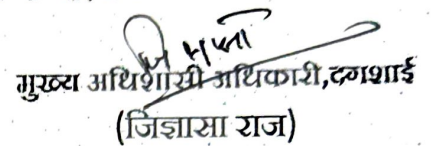 मुख्य अधिशासी अधिकारी,दगशाई
(जिज्ञासा राज)